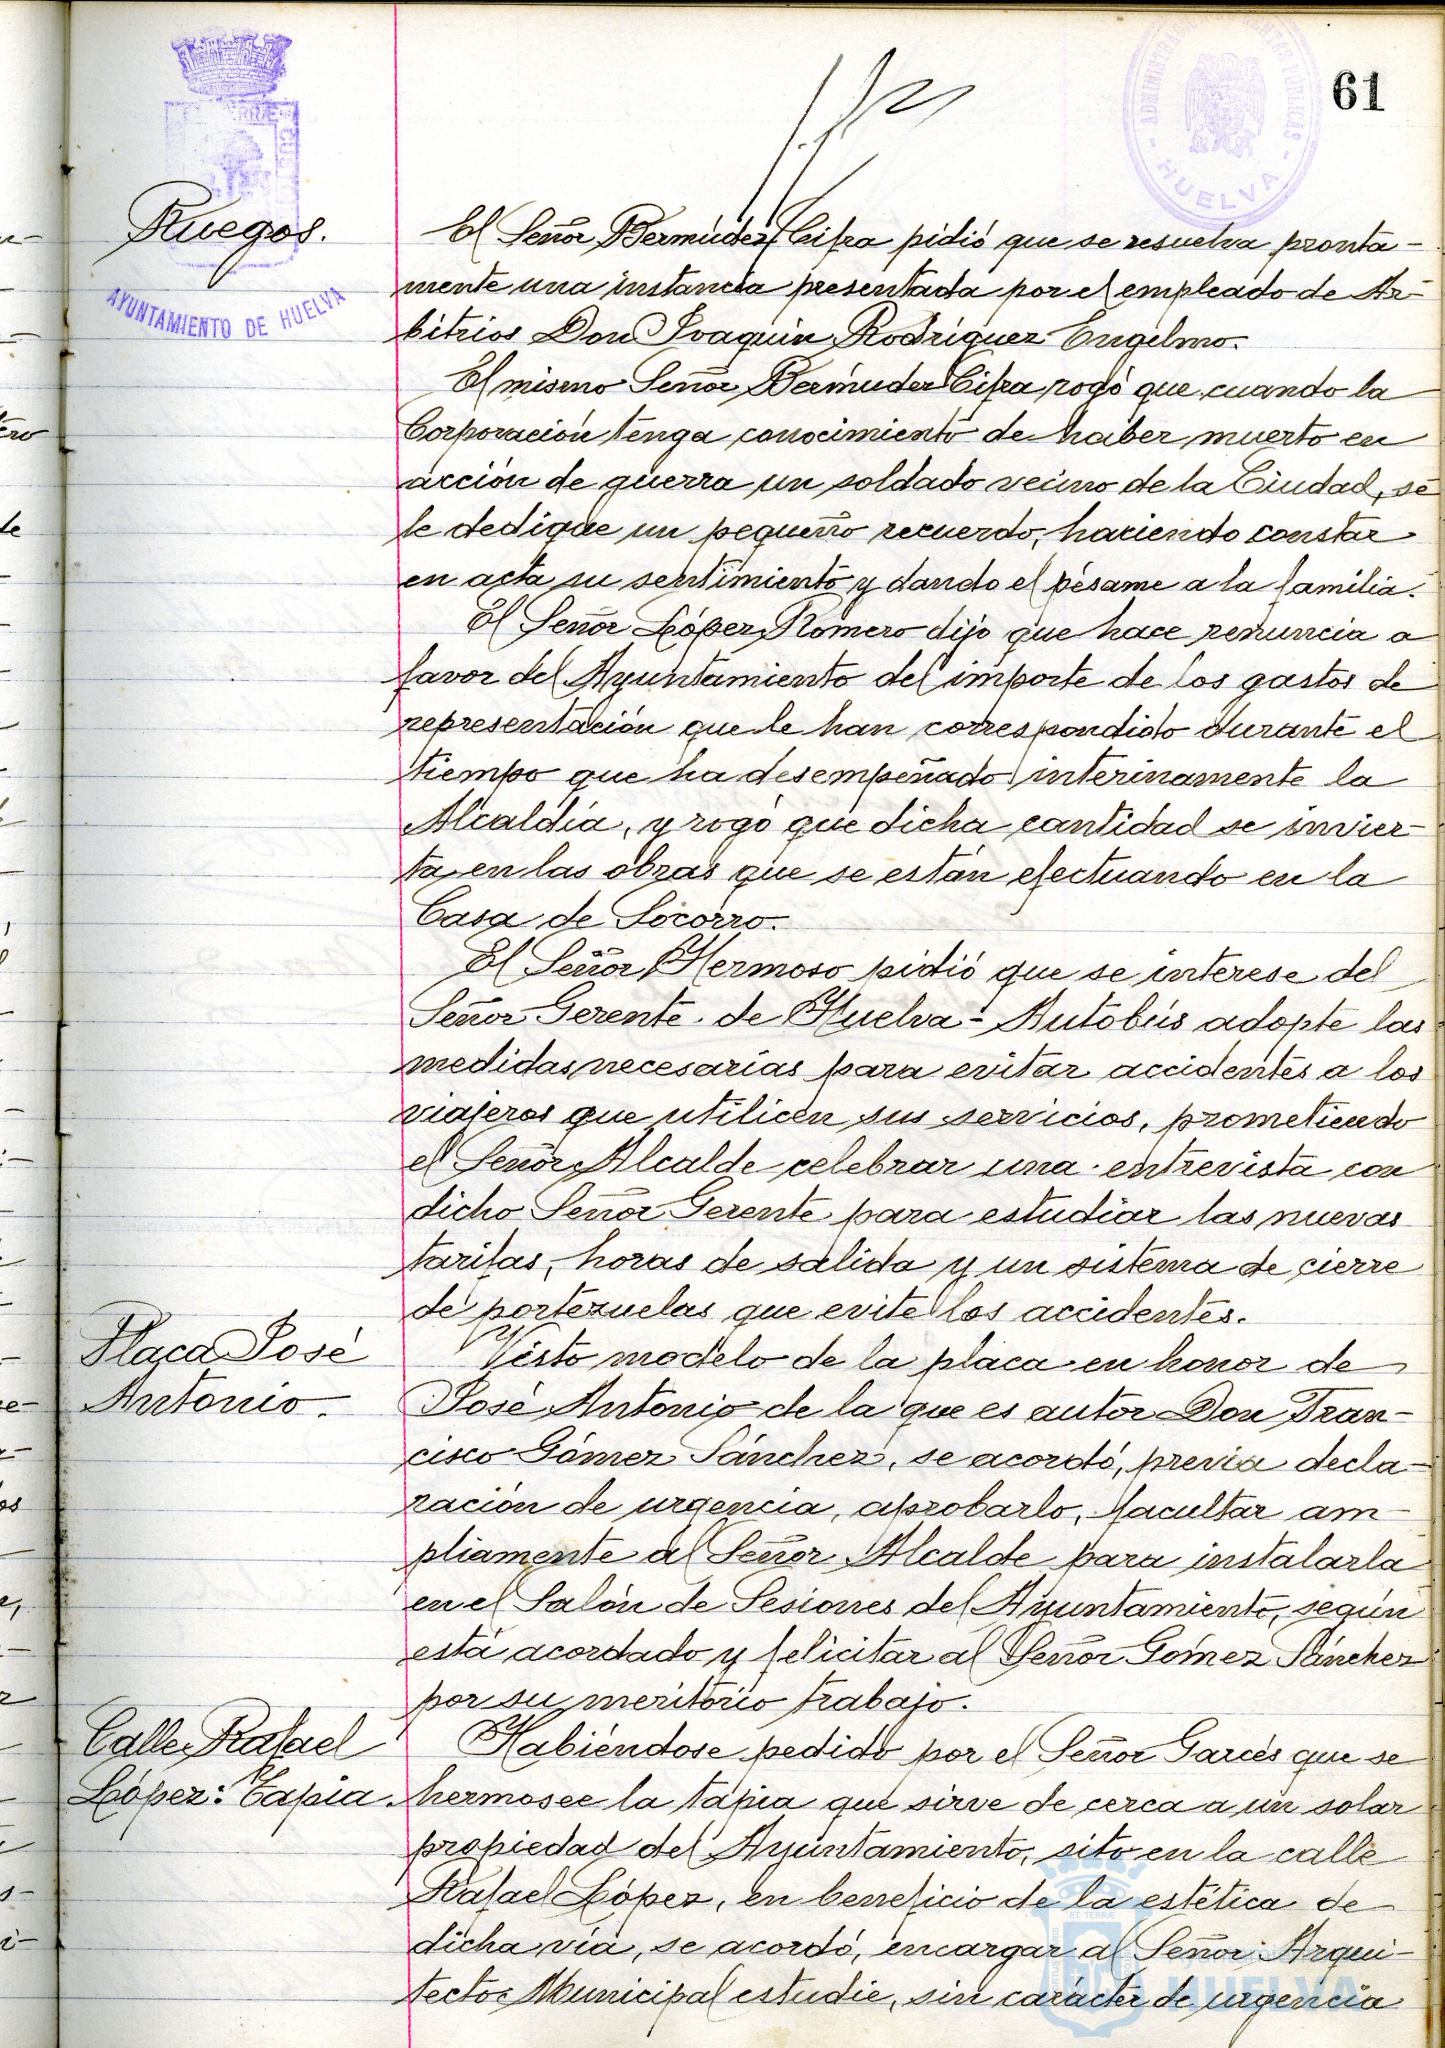 61
ADMINISTRACION DE RENTAS PUBLICAS
- HUELVA -
AYUNTAMIENTO DE HUELVA
Ruegos.
El Señor Bermúdez Cifra pidió que se resuelva pronta-
mente una instancia presentada por el empleado de Ar-
bitrios Don Joaquin Rodriguez Engelmo.
El mismo Señor Bermudez Cifra rogó que cuando la
Corporación tenga conocimiento de haber muerto en
acción de guerra un soldado vecino de la Ciudad, se
le dedique un pequeño recuerdo, haciendo constar
en acta su sentimiento y dando el pésame a la familia.
El Señor López Romero dijo que hace renuncia a
favor del Ayuntamiento del importe de los gastos de
representación que le han correspondido durante el
tiempo que ha desempeñado interinamente la
Alcaldía, y rogó que dicha cantidad se invier-
ta en las obras que se están efectuando en la
Casa de Socorro.
El Señor Hermoso pidió que se interese del
Señor Gerente de Huelva-Autobús adopte las
medidas necesarias para evitar accidentes a los
viajeros que utilicen sus servicios, prometiendo
el Señor Alcalde celebrar una entrevista con
dicho Señor Gerente para estudiar las nuevas
tarifas, horas de salida y un sistema de cierre
de portezuelas que evite los accidentes.
Placa José
Antonio.
Visto modelo de la placa en honor de
José Antonio de la que es autor Don Fran-
cisco Gómez Sánchez, se acordó, previa decla-
ración de urgencia, aprobarlo, facultar am-
pliamente al Señor Alcalde para instalarla
en el Salón de Sesiones del Ayuntamiento, según
está acordado y felicitar al Señor Gómez Sánchez
por su meritorio trabajo.
Calle Rafael
López: Tapia.
Habiéndose pedido por el Señor Garcés que se
hermosee la tapia que sirve de cerca a un solar
propiedad del Ayuntamiento, sito en la calle
Rafael López, en beneficio de la estética de
dicha vía, se acordó, encargar al Señor Arqui-
tecto Municipal estudie, sin carácter de urgencia
HUELVA